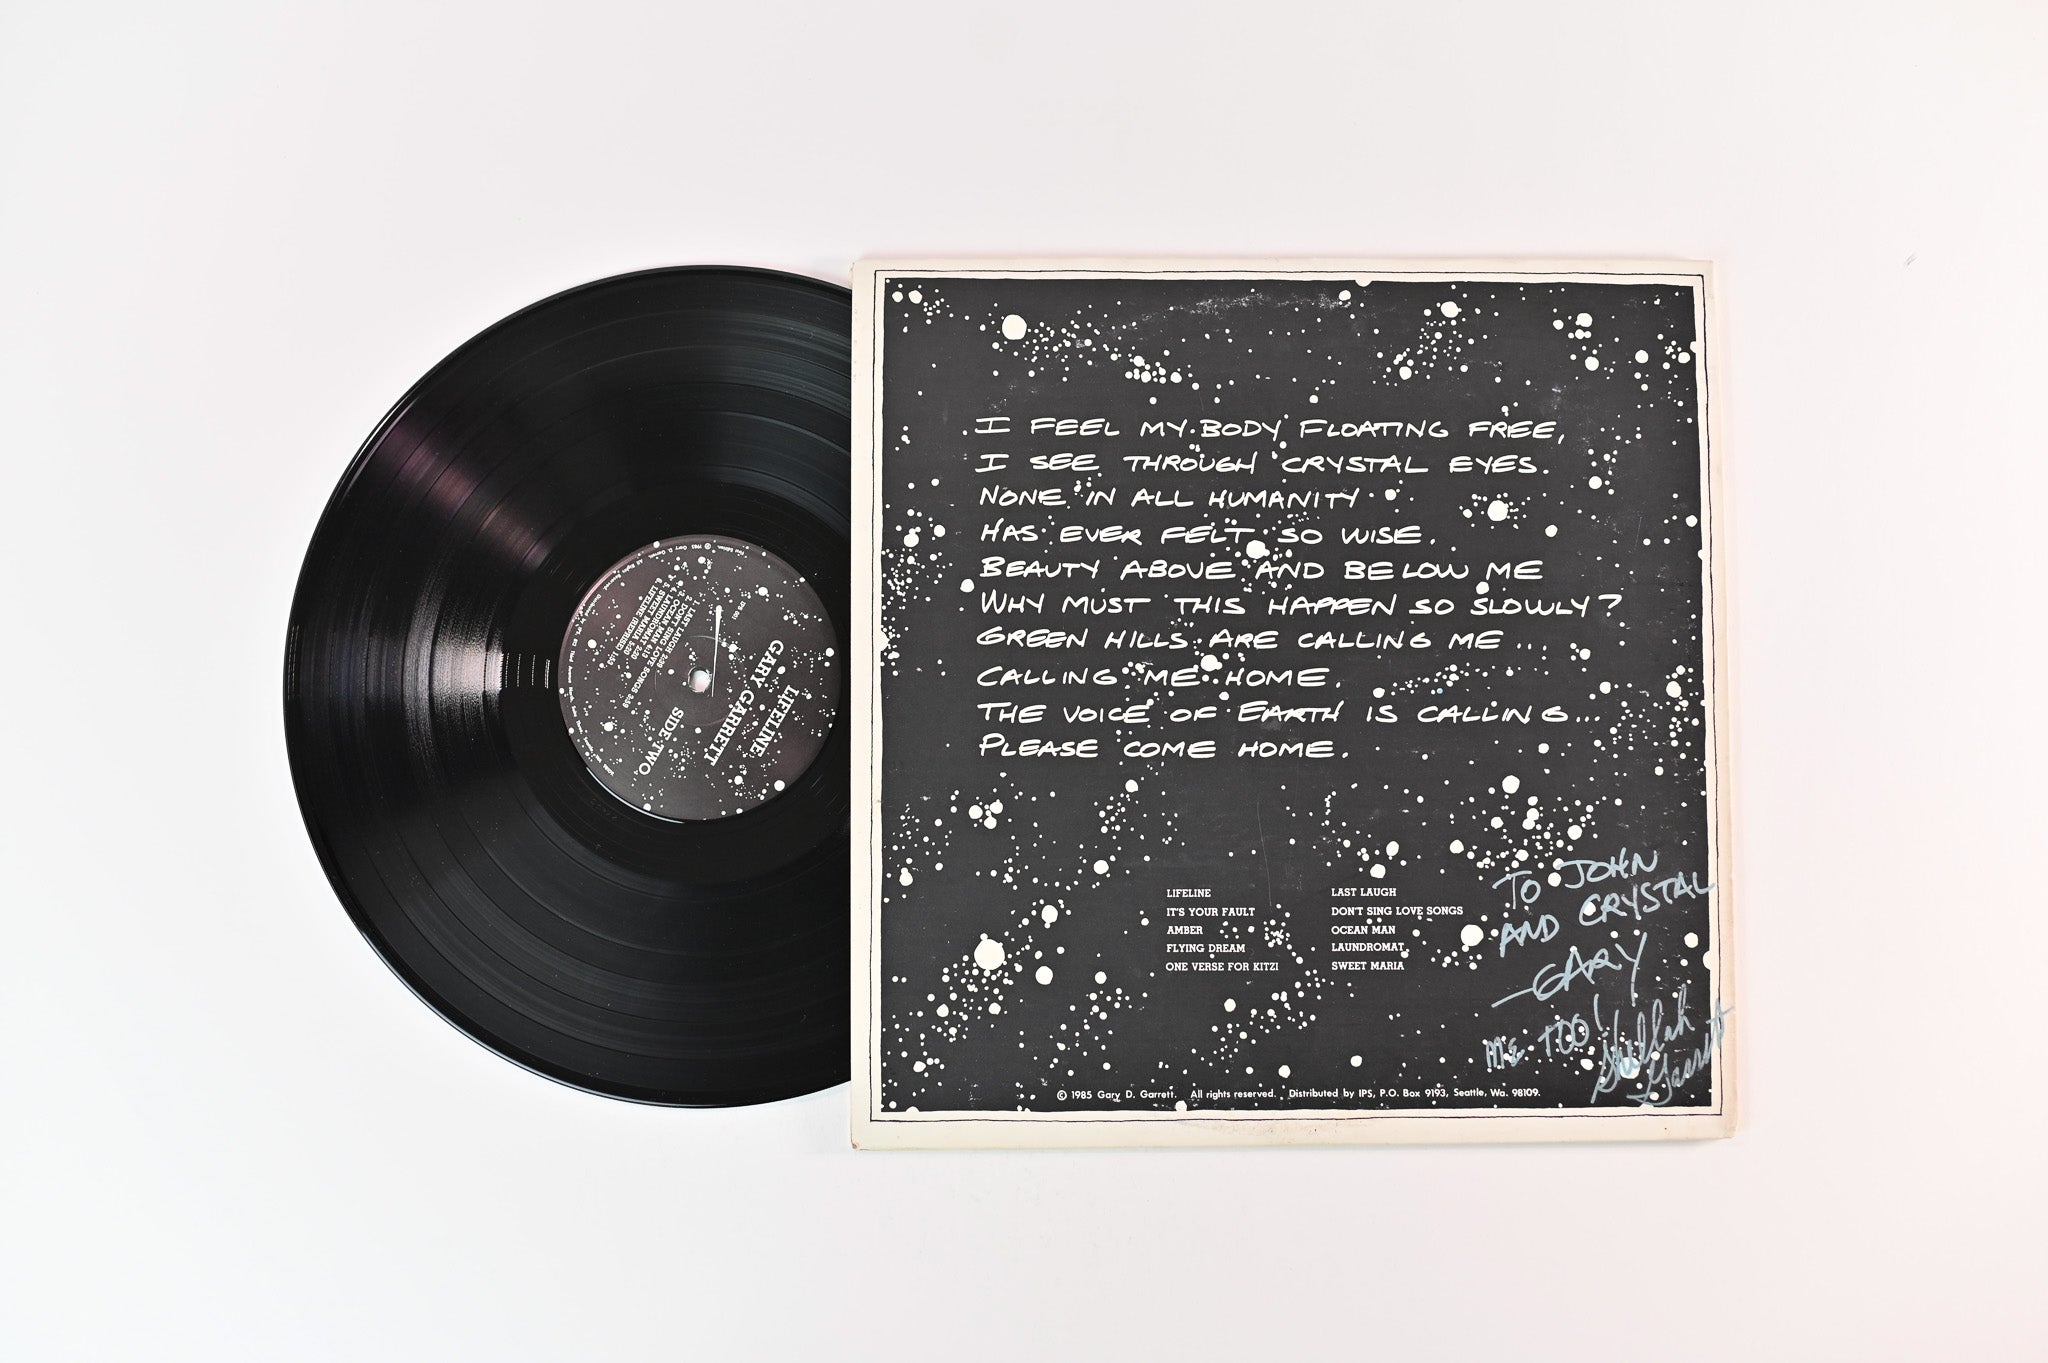 I FEEL MY BODY FLOATING FREE,
I SEE THROUGH CRYSTAL EYES.
NONE IN ALL HUMANITY
HAS EVER FELT SO WISE.
BEAUTY ABOVE AND BELOW ME
WHY MUST THIS HAPPEN SO SLOWLY?
GREEN HILLS ARE CALLING ME...
CALLING ME HOME.
THE VOICE OF EARTH IS CALLING...
PLEASE COME HOME.
LIFELINE
IT'S YOUR FAULT
AMBER
FLYING DREAM
ONE VERSE FOR KITZI
LAST LAUGH
DON'T SING LOVE SONGS
OCEAN MAN
LAUNDROMAT
SWEET MARIA
TO JOHN
AND CRYSTAL
—GARY
ME TOO!
Garrett
© 1985 Gary D. Garrett. All rights reserved. Distributed by IPS, P.O. Box 9193, Seattle, Wa. 98109.
LIFELINE
GARY GARRETT
SIDE TWO
1. LAST LAUGH 2:39
2. DON'T SING LOVE SONGS 3:59
3. OCEAN MAN
4. LAUNDROMAT
5. SWEET MARIA
6. LIFELINE (REPRISE)